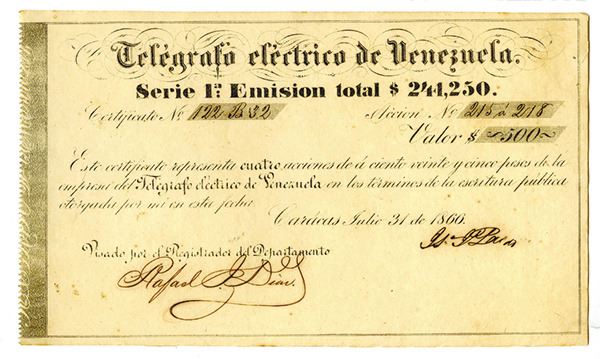 Telégrafo eléctrico de Venezuela.
Serie 1ª. Emision total $ 244,250.
Certificato Nº 122 B 32 Accion Nº 215 á 218
Valor $ ~500~
Este certificato representa cuatro acciones de á ciento veinte y cinco pesos de la
empresa del Telégrafo eléctrico de Venezuela en los términos de la escritura pública
otorgada por mi en esta fecha.
Carácas Julio 31 de 1866.
Visado por el Registrador del Departamento
Rafael J. Diaz.